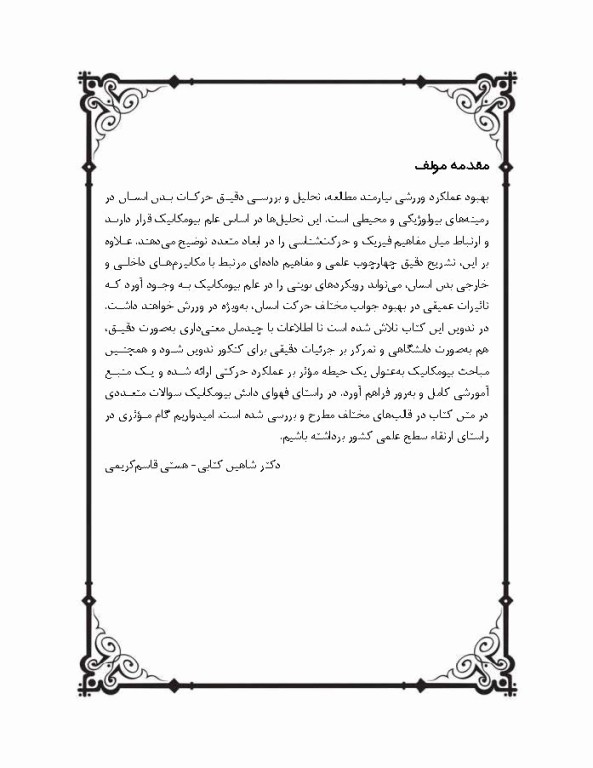 مقدمه مولف
بهبود عملکرد ورزشی نیازمند مطالعه، تحلیل و بررسی دقیق حرکات بدن انسان در
زمینه‌های بیولوژیکی و محیطی است. این تحلیل‌ها در اساس علم بیومکانیک قرار دارند
و ارتباط میان مفاهیم فیزیک و حرکت‌شناسی را در ابعاد متعدد توضیح می‌دهند. علاوه
بر این، تشریح دقیق چهارچوب علمی و مفاهیم داده‌ای مرتبط با مکانیزم‌های داخلی و
خارجی بدن انسان، می‌تواند رویکردهای نوینی را در علم بیومکانیک به وجود آورد که
تاثیرات عمیقی در بهبود جوانب مختلف حرکت انسان، به‌ویژه در ورزش خواهند داشت.
در تدوین این کتاب تلاش شده است تا اطلاعات با چیدمان معنی‌داری به‌صورت دقیق،
هم به‌صورت دانشگاهی و تمرکز بر جزئیات دقیقی برای کنکور تدوین شود و همچنین
مباحث بیومکانیک به‌عنوان یک حیطه مؤثر بر عملکرد حرکتی ارائه شده و یک منبع
آموزشی کامل و به‌روز فراهم آورد. در راستای فهوای دانش بیومکانیک سوالات متعددی
در متن کتاب در قالب‌های مختلف مطرح و بررسی شده است. امیدواریم گام مؤثری در
راستای ارتقاء سطح علمی کشور برداشته باشیم.
دکتر شاهین کتابی- هستی قاسم‌کریمی